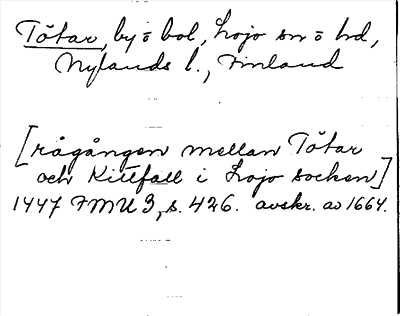 Tötar, by o bol, Lojo sn o hd,
Nylands l., Finland
[rågången mellan Tötar
och Kittfall i Lojo socken]
1447 FMU 3, s. 426. avskr. av 1664.